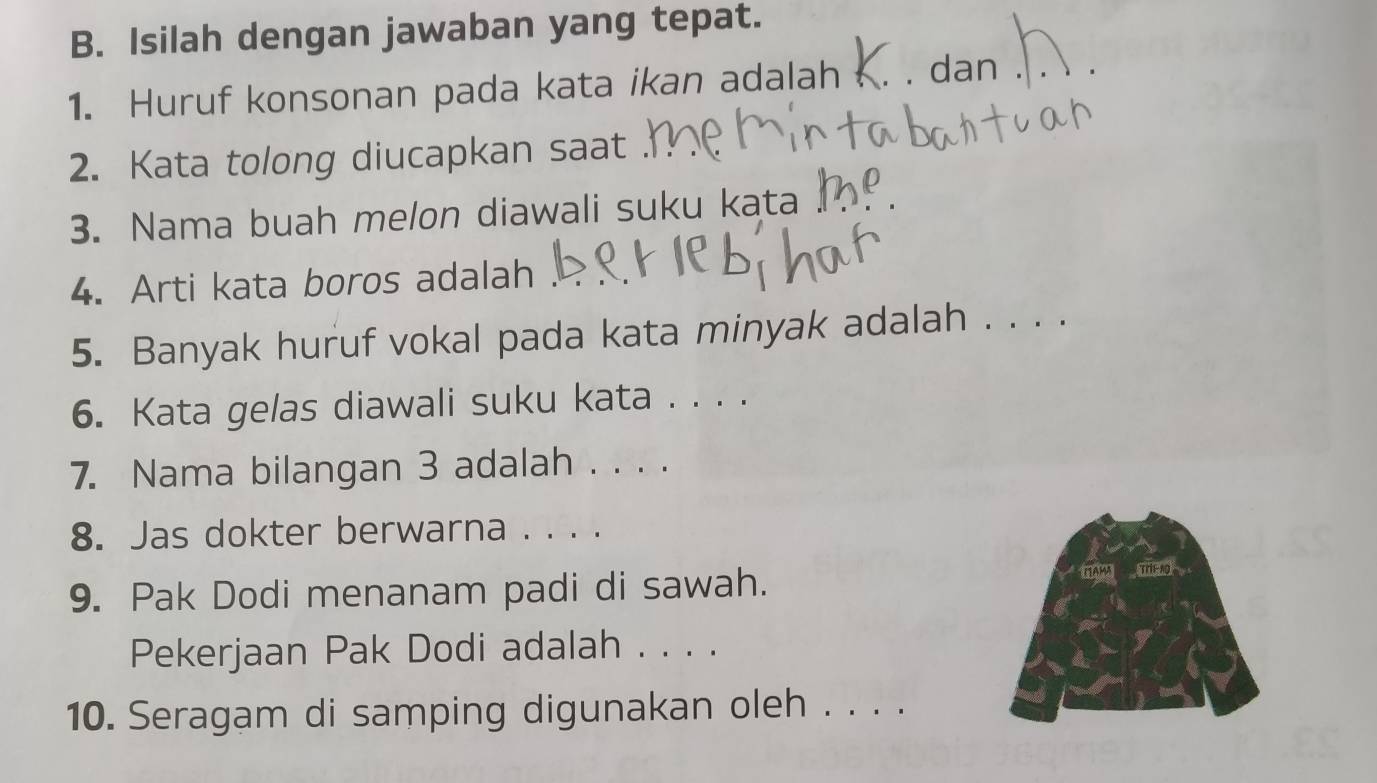 B. Isilah dengan jawaban yang tepat.
1. Huruf konsonan pada kata ikan adalah K. . dan . n . .
2. Kata tolong diucapkan saat . . . . memintabantuan
3. Nama buah melon diawali suku kata . me . .
4. Arti kata boros adalah . . . . berlebihan
5. Banyak huruf vokal pada kata minyak adalah . . . .
6. Kata gelas diawali suku kata . . . .
7. Nama bilangan 3 adalah . . . .
8. Jas dokter berwarna . . . .
9. Pak Dodi menanam padi di sawah.
Pekerjaan Pak Dodi adalah . . . .
10. Seragam di samping digunakan oleh . . . .